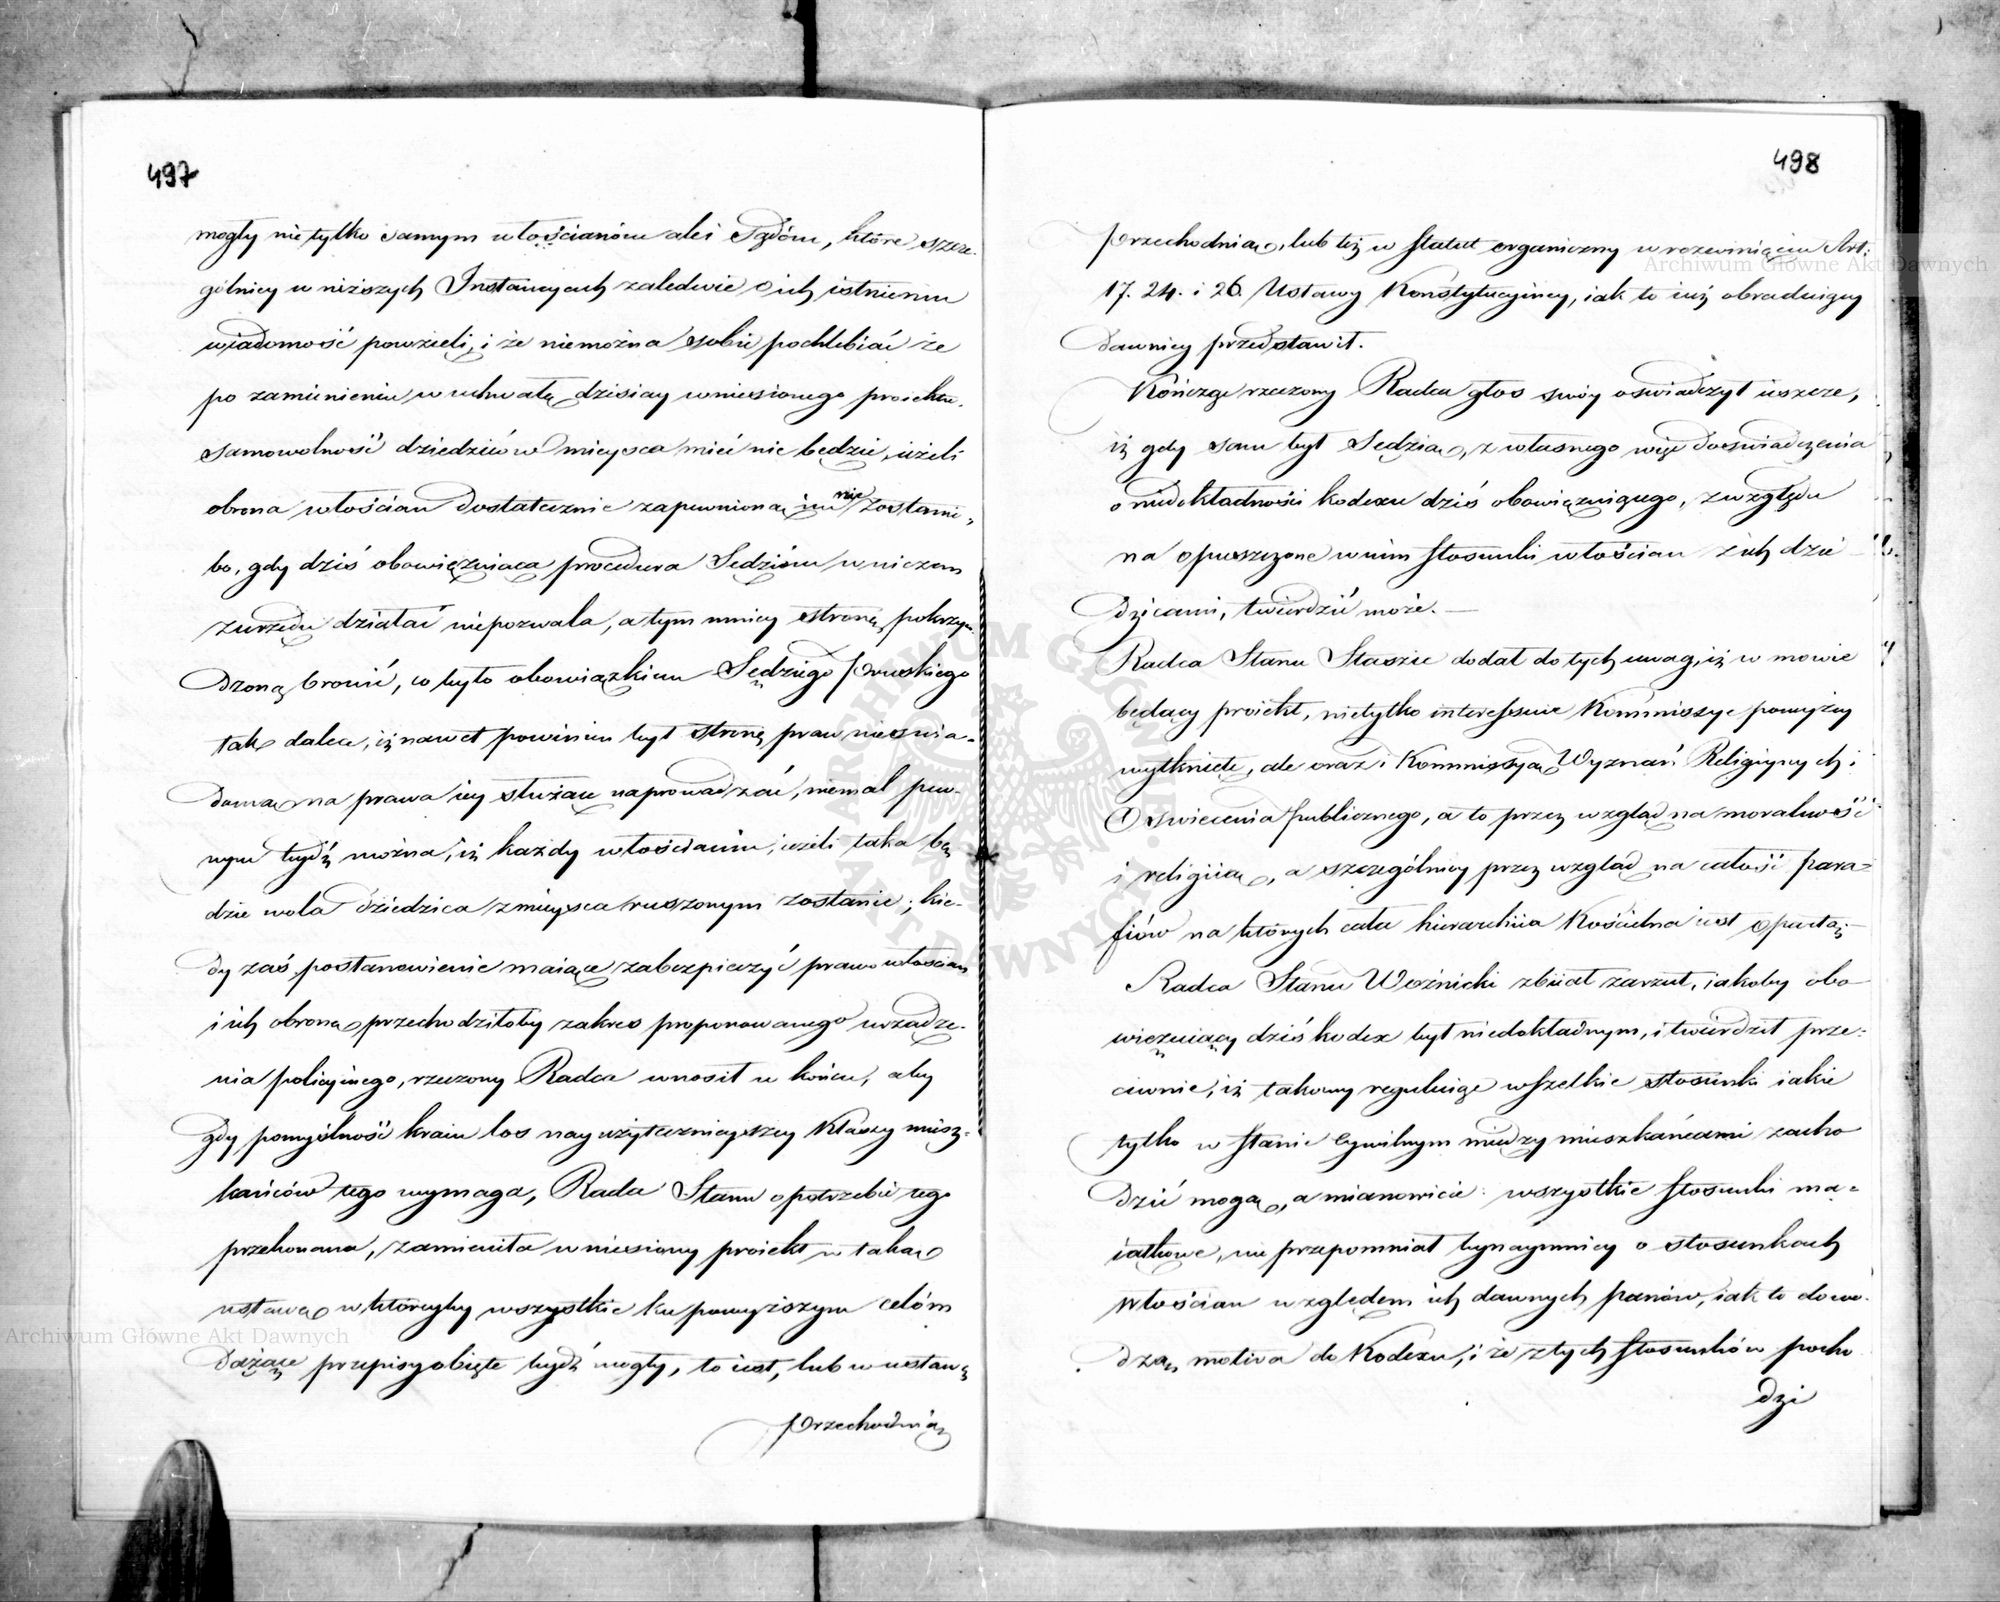 497
mogły nie tylko samym włościanóm ale i Sądóm, które szcze-
gólniey w niższych Instancyach zaledwie o ich istnieniu
wiadomość powzieli, i że niemożna sobie pochlebiać że
po zamienieniu w uchwałę dzisiay wniesionego proiektu
samowolność dziedziców mieysca mieć nie będzie, ieżeli
obrona włościan dostatecznie zapewnioną im nie zostanie,
bo, gdy dziś obowięzuiąca procedura Sędziemu w niczem
z urzędu działać niepozwala, a tym mniey stronę pokrzyw-
dzoną bronić, co było obowiązkiem Sędziego Pruskiego
tak dalece, iż nawet powinien był stronę praw nieświa-
domą na prawa iey służące naprowadzać, niemal pew-
nym bydź można, iż każdy włościanin, ieżeli taka bę
dzie wola dziedzica z mieysca ruszonym zostanie; kie-
dy zaś postanowienie maiące zabezpieczyć prawa włoscian
i ich obronę przechodziłoby zakres proponowanego urządze-
nia policyinego, rzeczony Radca wnosił w końcu, aby
gdy pomyślność kraiu los nayużytecznieyszey Klassy miesz-
kańców tego wymaga, Rada Stanu o potrzebie tego
przekonana, zamieniła wniesiony proiekt w taką
ustawę w któreyby wszystkie ku powyższym celóm
dążące przepisy obięte bydź mogły, to iest, lub w ustawę
przechodnią
498
przechodnią, lub też w Statut organiczny w rozwinięciu Art:
17. 24. i 26. Ustawy Konstytucyiney, iak to iuż obraduiący
dawniey przedstawił.
Kończąc rzeczony Radca głos swóy oświadczył ieszcze,
iż gdy sam był Sędzią, z własnego więc doświadczenia
o niedokładności kodexu dziś obowięzuiącego, z względu
na opuszczone w nim stosunki włościan z ich dzie
dzicami, twierdzić może. —
Radca Stanu Staszic dodał do tych uwag, iż w mowie
będący proiekt, nietylko interessuie Kommissye powyżey
wytknięte, ale oraz i Kommissyą Wyznań Religiynych i
Oswiecenia publicznego, a to przez wzgląd na moralność
i religiią, a szczególniey przez wzgląd na całość para-
fiów na których cała hierarchiia Kościelna iest oparta;
Radca Stanu Woźnicki zbiiał zarzut, iakoby obo
więzuiący dziś kodex był niedokładnym, i twierdził prze-
ciwnie, iż takowy reguluiąc wszelkie stosunki iakie
tylko w stanie Cywilnym miedzy mieszkańcami zacho
dzić mogą, a mianowicie: wszystkie stosunki ma-
iątkowe, nie przepomniał bynaymniey o stosunkach
włościan względem ich dawnych panów, iak to dowo-
dzą motiva do Kodexu, i że z tych stosunków pocho
dzi